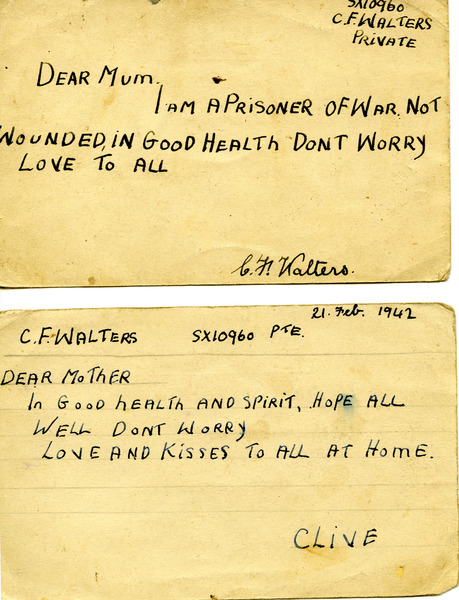 SX10960
C.F. WALTERS
PRIVATE
DEAR MUM.
I AM A PRISONER OF WAR. NOT
WOUNDED, IN GOOD HEALTH DONT WORRY
LOVE TO ALL
C. F. Walters.
21. Feb. 1942
C.F. WALTERS SX10960 PTE.
DEAR MOTHER
IN GOOD HEALTH AND SPIRIT, HOPE ALL
WELL DONT WORRY
LOVE AND KISSES TO ALL AT HOME.
CLIVE